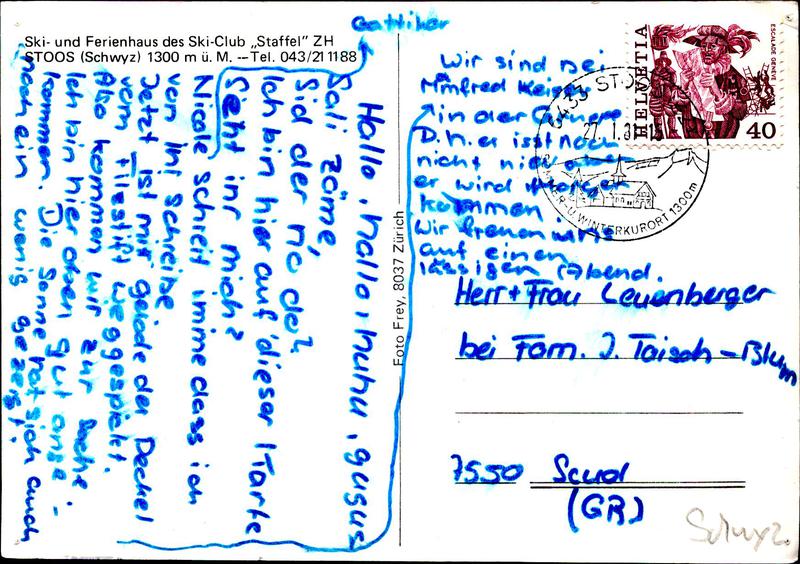 Ski- und Ferienhaus des Ski-Club „Staffel" ZH
STOOS (Schwyz) 1300 m ü. M. — Tel. 043/21 11 88
Hallo, hallo, huhu, gugus
Sali zäme,
Sid der no da?
Ich bin hier auf dieser Karte
Seht ihr mich?
Nicole schreit imme dass ich
von ihr schreibe
Jetzt ist mir gerade der Deckel
vom Filzstift weggespickt.
Also kommen wir zur Sache
Ich bin hier oben gut ange-
kommen. Die Sonne hat sich auch
noch ein wenig gezeigt.
Foto Frey, 8037 Zürich
Gattiker
Wir sind bei
Manfred
in der
D.h. er isst noch
nicht
er wird morgen
kommen
Wir freuen uns
auf einen
lässigen Abend.
HELVETIA
ESCALADE GENÈVE
40
6433 STOOS
27. 1. 8
SOMMER- U. WINTERKURORT 1300 m
Herr + Frau Leuenberger
bei Fam. J. Taisch-Blum
7550 Scuol
(GR)
Schwyz